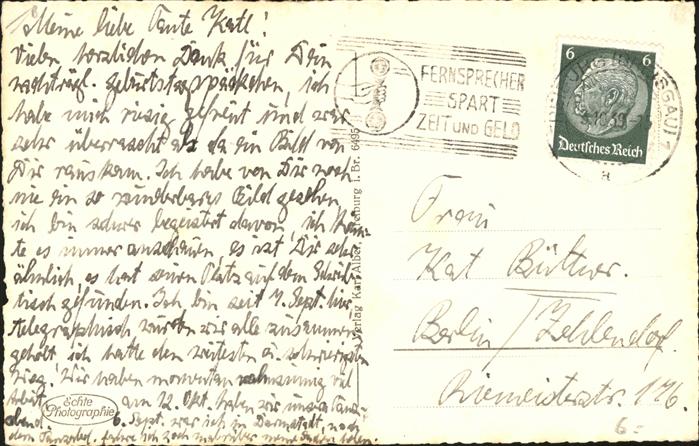 Meine liebe Tante Katl!
Vielen herzlichen Dank für Dein
nachträgl. Geburtstagspäckchen, ich
habe mich riesig gefreut und war
sehr überrascht als da ein Bild von
Dir rauskam. Ich habe von Dir noch
nie ein so wunderbares Bild gesehen
ich bin schwer begeistert davon, ich könn-
te es immer anschauen, es ist Dir sehr
ähnlich, es hat seinen Platz auf dem Schreib-
tisch gefunden. Ich bin seit 7. Sept. hier,
telegraphisch wurden wir alle zusammen
geholt, ich hatte den weitesten u. schwierigsten
Weg. Wir haben momentan wahnsinnig viel
Arbeit. am 22. Okt. haben wir unsern Tanz-
abend 6. Sept. war ich in Darmstadt, nach
dem Tanzabd. fahre ich
Echte
Photographie
Verlag Karl Alber, Freiburg i. Br. 6495
FERNSPRECHER
SPART
ZEIT UND GELD
6 6
Deutsches Reich
Frau
Kat Büttner.
Berlin / Zehlendorf.
Riemeisterstr. 176.
6=